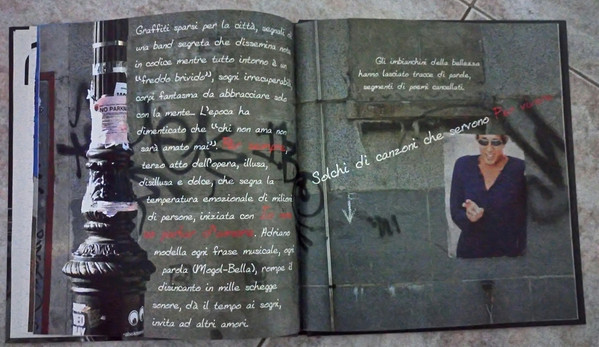 Graffiti sparsi per la città, segnali di
una band segreta che dissemina note
in codice mentre tutto intorno è un
"freddo brivido", sogni irrecuperabili
corpi fantasma da abbracciare solo
con la mente... L'epoca ha
dimenticato che "chi non ama non
sarà amato mai". Per sempre,
terzo atto dell'opera, illusa,
disillusa e dolce, che segna la
temperatura emozionale di milioni
di persone, iniziata con Io non
so parlar d'amore. Adriano
modella ogni frase musicale, ogni
parola (Mogol-Bella), rompe il
disincanto in mille schegge
sonore, dà il tempo ai sogni,
invita ad altri amori.
NO PARKING
Gli imbianchini della bellezza
hanno lasciato tracce di parole,
segmenti di poemi cancellati.
Solchi di canzoni che servono Per vivere